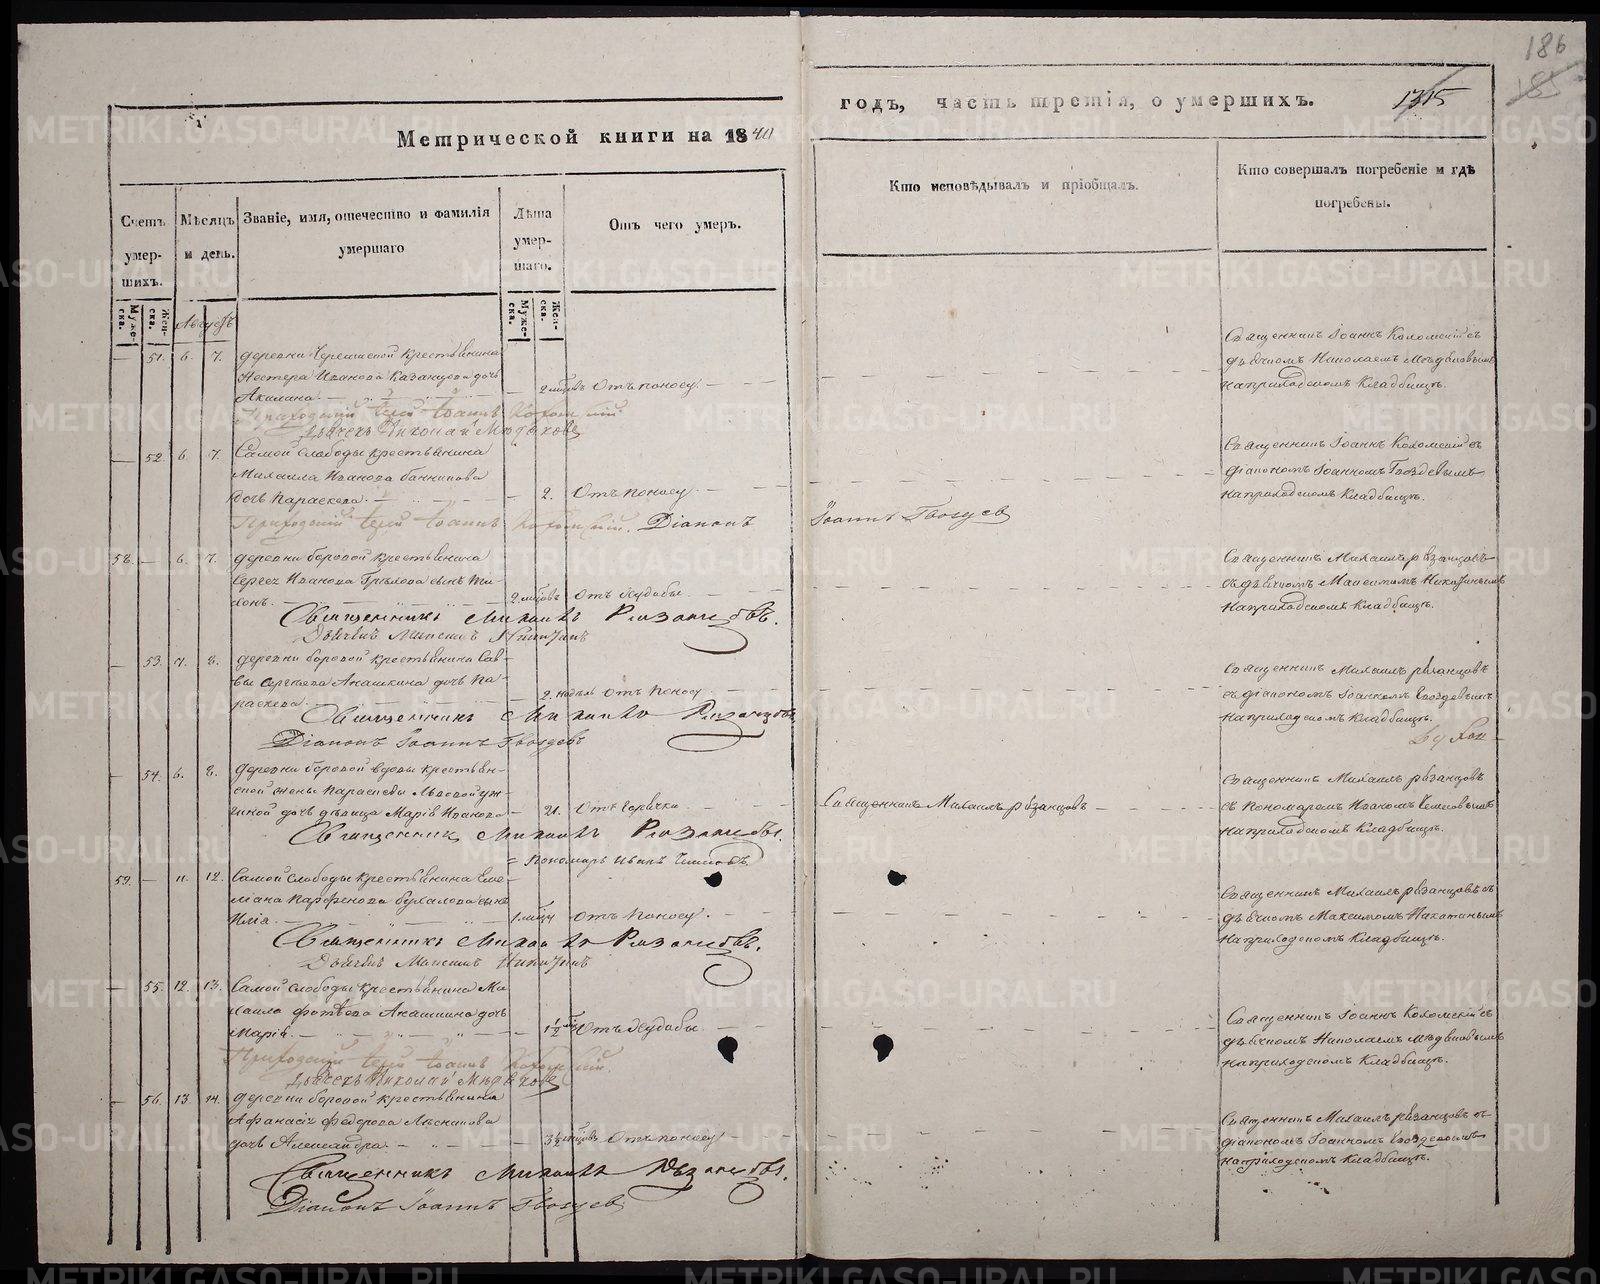 186
185
1315
Метрической книги на 1840
годъ, часть третія, о умершихъ.
Счетъ умер-шихъ.
Мѣсяцъ и день.
Званіе, имя, отечество и фамилія умершаго
Лѣта умер-шаго.
Отъ чего умеръ.
Кто исповѣдывалъ и пріобщалъ.
Кто совершалъ погребеніе и гдѣ погребены.
Муже-ска.
Жен-ска.
Муже-ска.
Жен-ска.
Августъ
— 51. 6. 7. деревни крестьянина
Нестера Иванова Казанцова дочь
Акилина. — 2 мѣсцовъ Отъ поносу.
Приходскій Іерей Іоаннъ Коломскій
Дьячекъ Николай
Священникъ Іоаннъ Коломскій съ
дьячкомъ Николаемъ
на приходскомъ Кладбищѣ.
— 52. 6. 7. Самой слободы крестьянина
Михаила Иванова Банникова
дочь Параскева. — 2. Отъ поносу
Приходскій Іерей Іоаннъ Коломскій. Діаконъ Іоаннъ Гвоздевъ
Священникъ Іоаннъ Коломскій съ
діакономъ Іоанномъ Гвоздевымъ
на приходскомъ Кладбищѣ.
58. — 6. 7. деревни Боровой крестьянина
Иванова сынъ Ти-
хонъ. 2 мѣсцовъ Отъ Худобы
Священникъ Михаилъ Рязанцовъ.
Дьячекъ Максимъ Никитинъ
Священникъ Михаилъ Рязанцовъ
съ дьячкомъ Максимомъ Никитинымъ
на приходскомъ Кладбищѣ.
— 53. 7. 8. деревни Боровой крестьянина Сав-
вы Сергѣева Анашкина дочь Па-
раскева. 2 недѣль Отъ поносу
Священникъ Михаилъ Рязанцовъ
Діаконъ Іоаннъ Гвоздевъ
Священникъ Михаилъ Рязанцовъ
съ діакономъ Іоанномъ Гвоздевымъ
на приходскомъ Кладбищѣ.
— 54. 6. 8. деревни Боровой вдовы крестьян-
ской жены Параскевы
дочь дѣвица Марія Иванова — 21. Отъ горячки
Священникъ Михаилъ Рязанцовъ
Священникъ Михаилъ Рязанцовъ.
Пономарь Иванъ
Священникъ Михаилъ Рязанцовъ
съ пономаремъ Иваномъ
на приходскомъ Кладбищѣ.
59. — 11. 12. Самой слободы крестьянина Еме-
ліана Парфенова сынъ
Илія. 1 мѣсяц Отъ поносу.
Священникъ Михаилъ Рязанцовъ.
Дьячекъ Максимъ Никитинъ
Священникъ Михаилъ Рязанцовъ съ
дьячкомъ Максимомъ Никитинымъ
на приходскомъ Кладбищѣ.
— 55. 12. 13. Самой слободы крестьянина Ми-
хаила Фотѣева Анашкина дочь
Марія. 1½ Отъ Худобы
Приходскій Іерей Іоаннъ Коломскій.
Дьячекъ Николай
Священникъ Іоаннъ Коломскій съ
дьячкомъ Николаемъ
на приходскомъ Кладбищѣ.
— 56. 13. 14. деревни Боровой крестьянина
Афанасія Федорова Лѣсникова
дочь Александра. 3½ мѣсцовъ Отъ поносу
Священникъ Михаилъ Рязанцовъ.
Діаконъ Іоаннъ Гвоздевъ
Священникъ Михаилъ Рязанцовъ съ
діакономъ Іоанномъ Гвоздевымъ
на приходскомъ Кладбищѣ.
METRIKI.GASO-URAL.RU